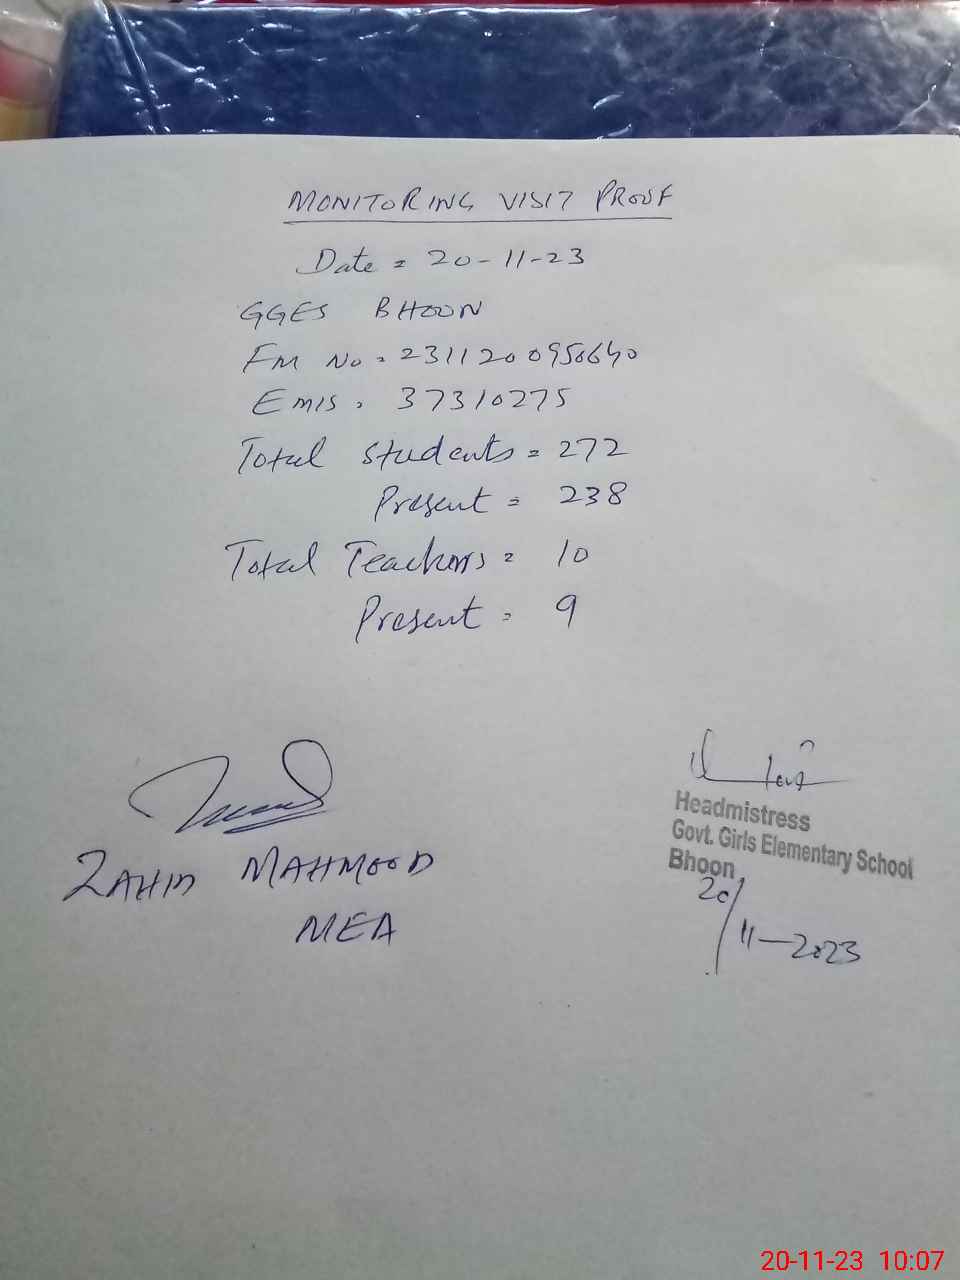 MONITORING VISIT PROOF
Date = 20-11-23
GGES BHOON
FM No = 2311200950640
EMIS = 37310275
Total Students = 272
Present = 238
Total Teachers = 10
Present = 9
ZAHID MAHMOOD
MEA
Headmistress
Govt. Girls Elementary School
Bhoon
20/11-2023
20-11-23 10:07